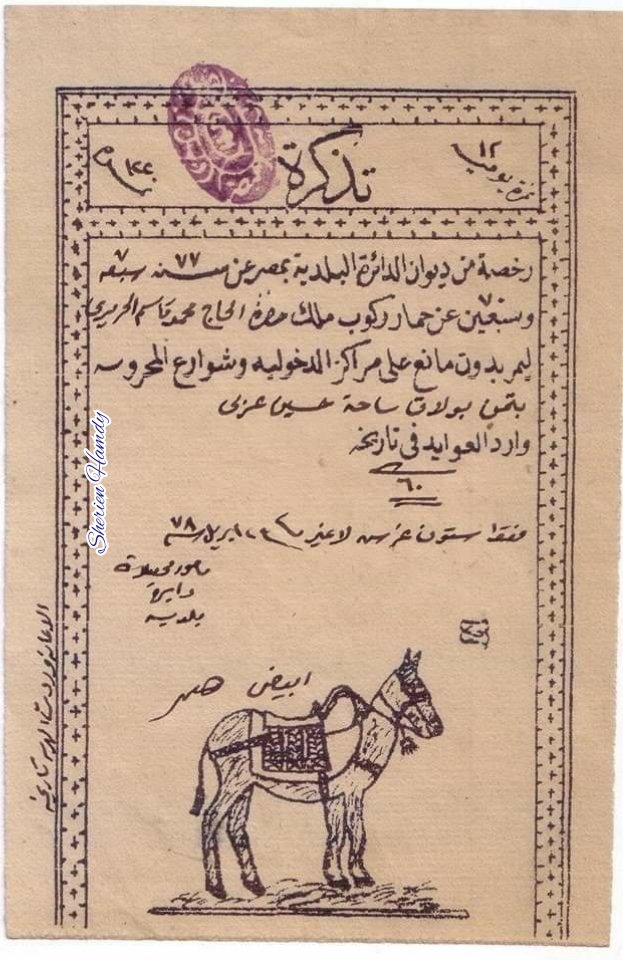 نمرة يومية ١٢
تذكرة
رخصة من ديوان الدائرة البلدية بمصر عن سنة ٧٧ سبعة
وسبعين عن حمار ركوب ملك حضرة الحاج محمد قاسم الحريري
ليمر بدون مانع على مراكز الدخوليه وشوارع المحروسه
بتمن بولاق ساحة حسين عزى
وارد العوايد فى تاريخه
٦٠
فقط ستون غرش لا غير
ابريل سنة ٧٨
مامور تحصيلات
دايرة
بلديه
ابيض
Sherien Hamdy